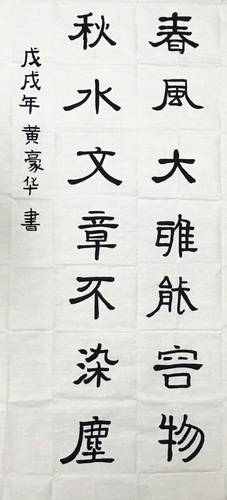 春風大雅能容物
秋水文章不染塵
戊戌年黄豪华書